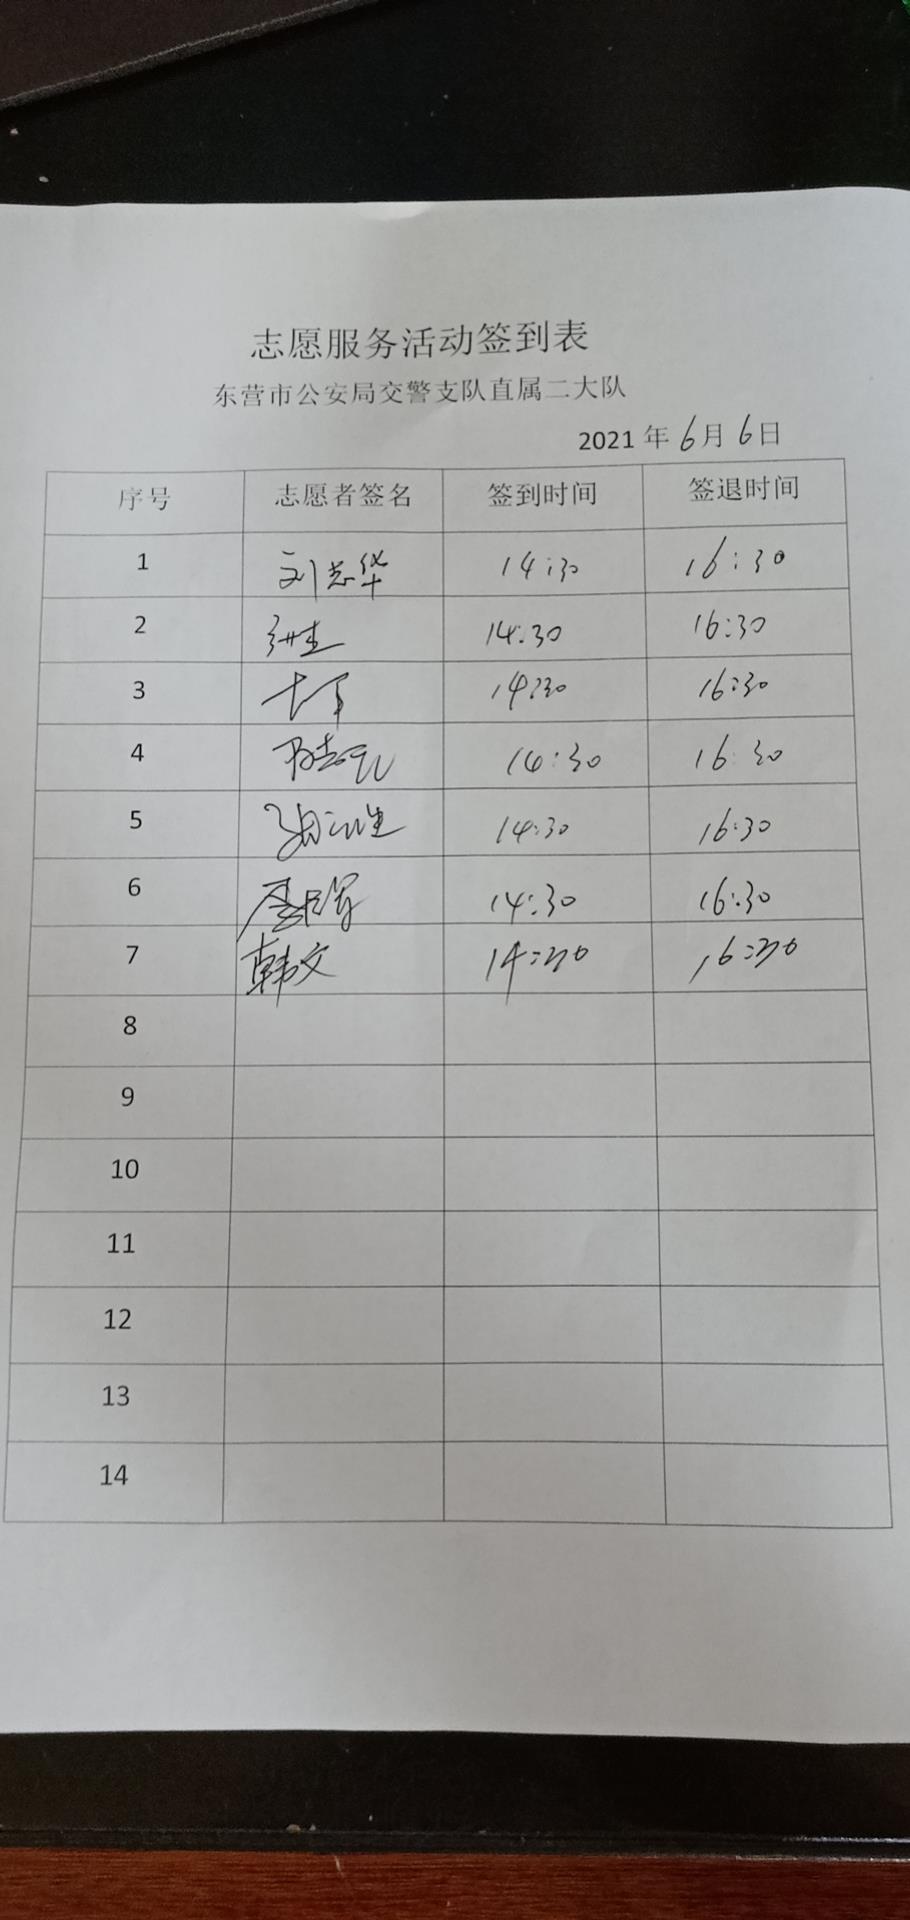 志愿服务活动签到表
东营市公安局交警支队直属二大队
2021 年 6月 6日
序号 志愿者签名 签到时间 签退时间
1 刘志华 14:30 16:30
2 14:30 16:30
3 14:30 16:30
4 14:30 16:30
5 14:30 16:30
6 14:30 16:30
7 韩文 14:30 16:30
8
9
10
11
12
13
14